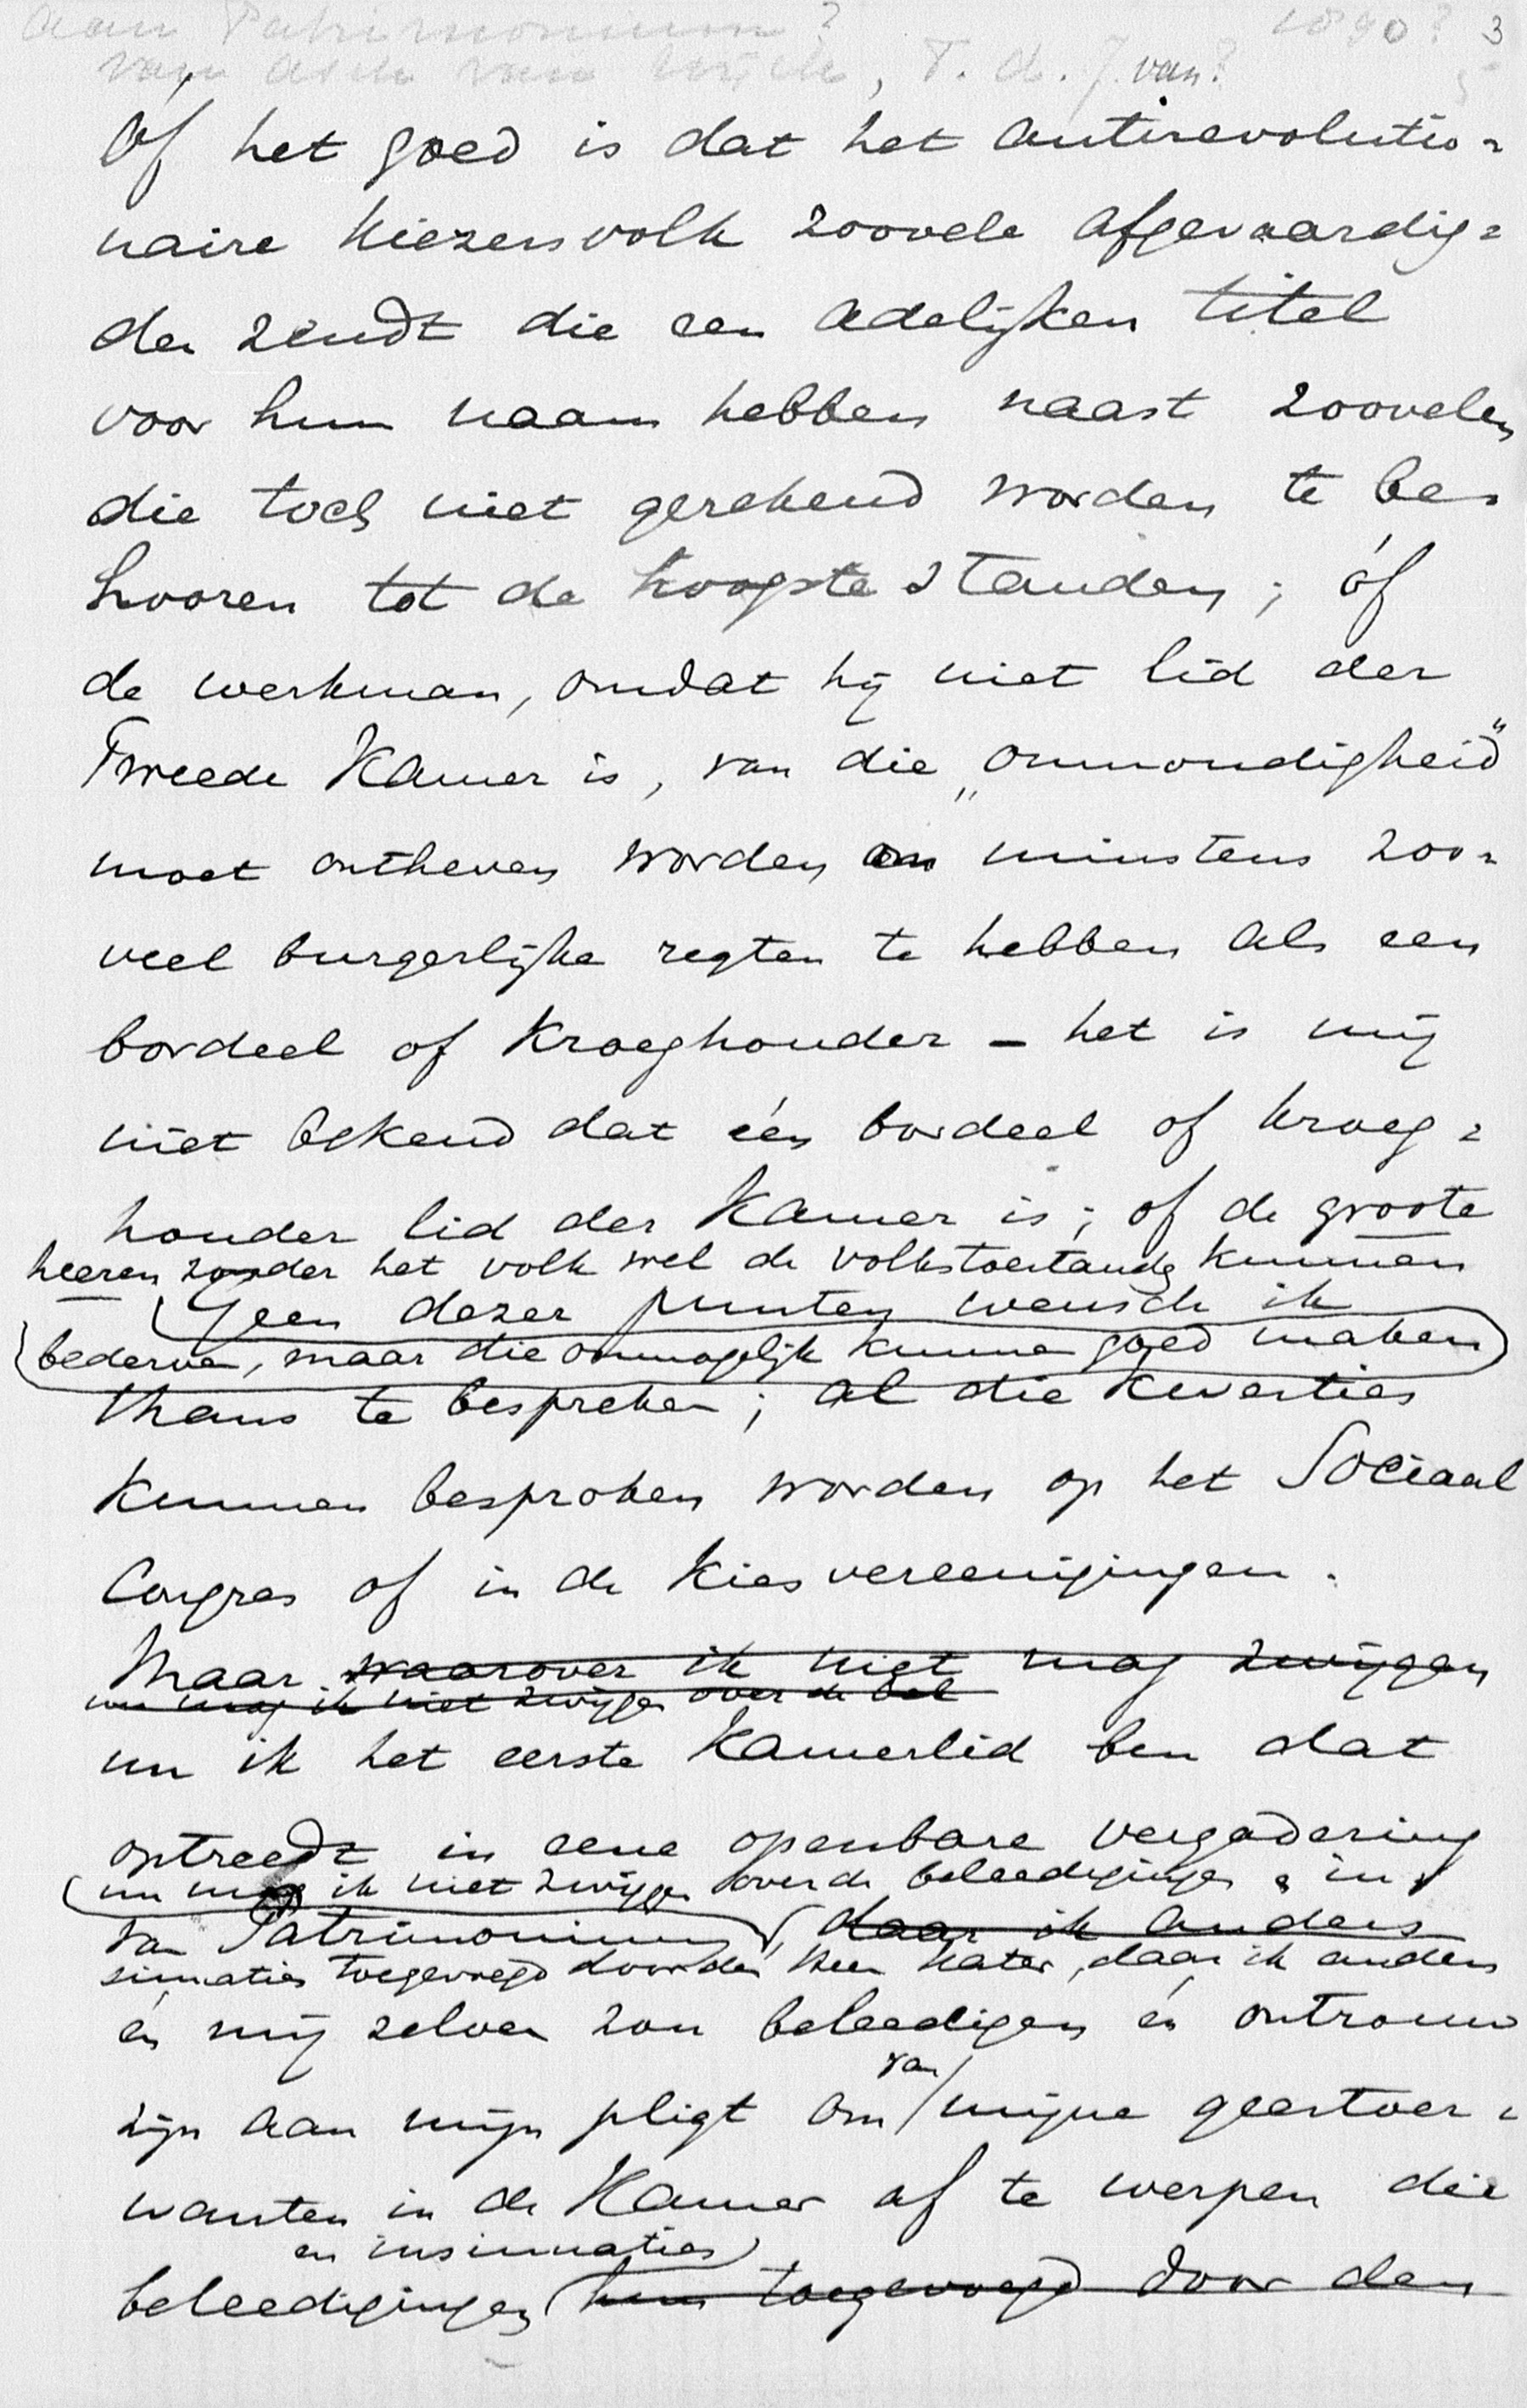 aan Patrimonium? 1890? 3
van Asch van Wijck, T. d. J. van?
Óf het goed is dat het antirevolutio=
naire kiezersvolk zoovele afgevaardig=
den zendt die een adelijken titel
voor hun naam hebben naast zoovelen
die toch niet gerekend worden te be=
hooren tot de hoogste standen; óf
de werkman, omdat hij niet lid der
Tweede Kamer is, van die „onmondigheid"
moet ontheven worden om minstens zoo=
veel burgerlijke regten te hebben als een
bordeel of kroeghouder – het is mij
niet bekend dat één bordeel of kroeg=
houder lid der Kamer is; of de groote
heeren zonder het volk wel de volkstoestanden kunnen
Geen dezer punten wensch ik
bederven, maar die onmogelijk kunnen goed maken
thans te bespreken; al die kwesties
kunnen besproken worden op het Sociaal
Congres of in de Kiesvereenigingen.
Maar waarover ik niet mag zwijgen
nu mag ik niet zwijgen over de bel
nu ik het eerste Kamerlid ben dat
optreedt in eene openbare vergadering
nu mag ik niet zwijgen over de beleedigingen & in
van Patrimonium, daar ik anders
sinuaties toegevoegd door den heer Kater, daar ik anders
én mij zelven zou beleedigen én ontrouw
van
zijn aan mijn pligt om mijne geestver=
wanten in de Kamer af te werpen die
en insinuaties
beleedigingen hun toegevoegd door den